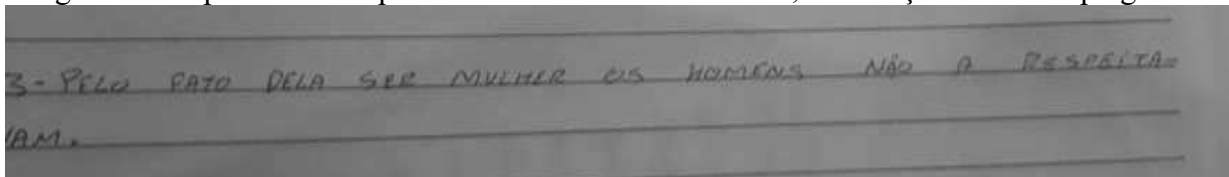 3- PELO FATO DELA SER MULHER OS HOMENS NÃO A RESPEITA-
VAM.